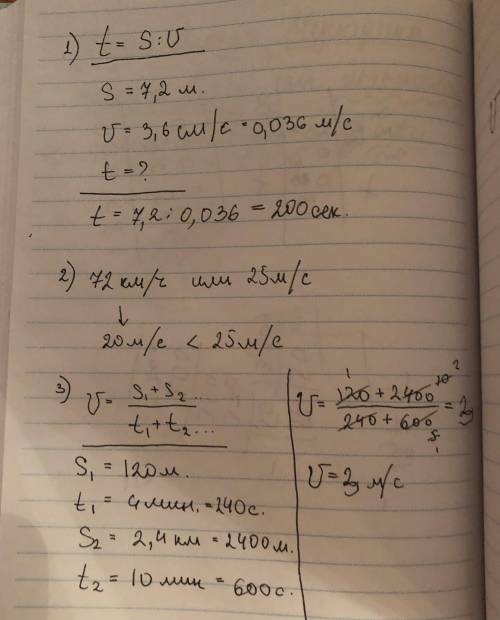 1) t = S : υ
S = 7,2 м.
υ = 3,6 см/с = 0,036 м/с
t = ?
t = 7,2 : 0,036 = 200 сек.
2) 72 км/ч или 25 м/с
↓
20 м/с < 25 м/с
3) υ = (S₁ + S₂ ...) / (t₁ + t₂ ...)
S₁ = 120 м.
t₁ = 4 мин. = 240 с.
S₂ = 2,4 км = 2400 м.
t₂ = 10 мин = 600 с.
υ = (120 + 2400) / (240 + 600) = 3
υ = 3 м/с